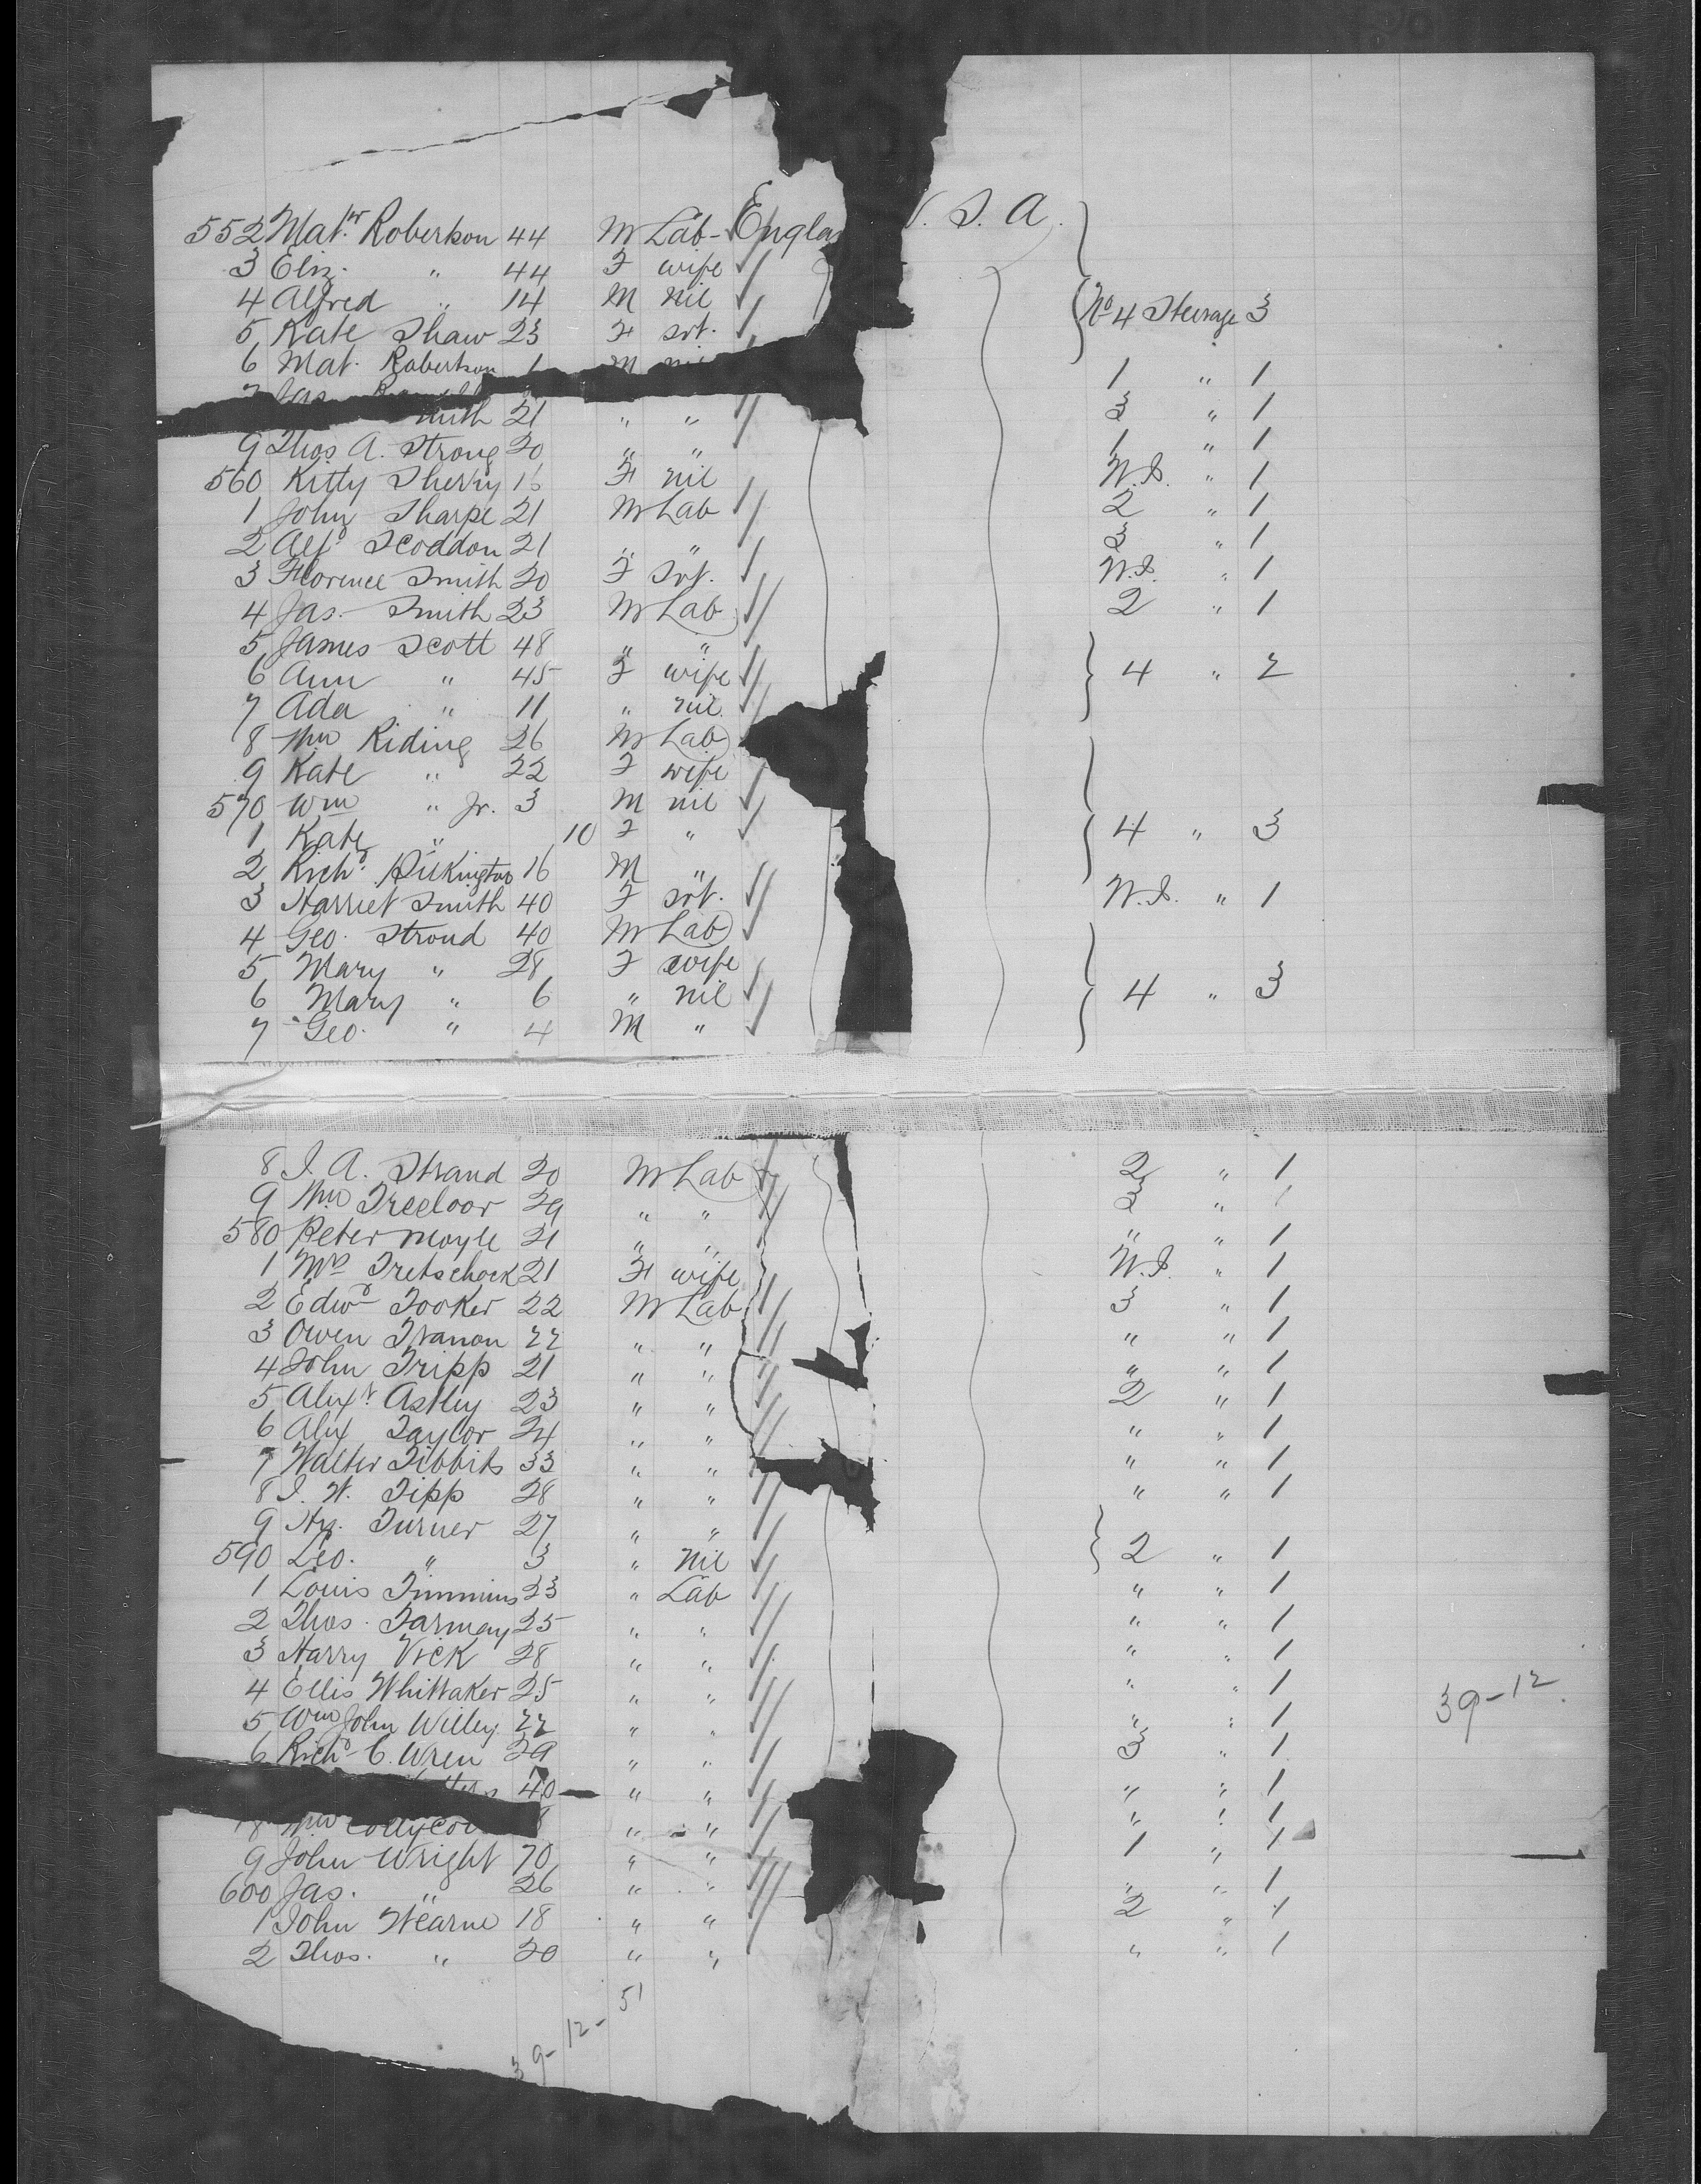 552 Mat.hw Robertson 44 M Lab - Engla U. S. A.
3 Eliz. " 44 F wife
4 Alfred " 14 M nil No 4 Steerage 3
5 Kate Shaw 23 F svt.
6 Mat. Robertson 1 M 1 " 1
7 Jas.
mith 21 " " 3 " 1
9 Thos A. Strong 20 " " 1 " 1
560 Kitty 16 F nil W.S. " 1
1 John Sharpe 21 M Lab 2 " 1
2 Alfd Scoddon 21 " " 3 " 1
3 Florence Smith 20 F Svt. W.S. " 1
4 Jas. Smith 23 M Lab 2 " 1
5 James Scott 48 " "
6 Ann " 45 F wife 4 " 2
7 Ada " 11 " nil
8 Wm Riding 26 M Lab
9 Kate " 22 F wife
570 Wm " Jr. 3 M nil
1 Kate " 10 F " 4 " 3
2 Richd Pilkington 16 M "
3 Harriet Smith 40 F svt. W.S. " 1
4 Geo. Stroud 40 M Lab
5 Mary " 28 F wife
6 Mary " 6 " nil 4 " 3
7 Geo. " 4 M "
8 J. A. Strand 20 M Lab 2 " 1
9 Wm Treeloar 29 " " 3 " 1
580 Peter Moyle 21 " " " " 1
1 Mrs 21 F wife W.S. " 1
2 Edwd Tooker 22 M Lab 3 " 1
3 Owen 22 " " " " 1
4 John Tripp 21 " " " " 1
5 Alexr Astley 23 " " 2 " 1
6 Alex Taylor 24 " " " " 1
7 Walter Tibbits 33 " " " " 1
8 J. W. Tipp 28 " " " " 1
9 Hy. Turner 27 " "
590 Leo. " 3 " nil 2 " 1
1 Louis Timmins 23 " Lab " " 1
2 Thos. 25 " " " " 1
3 Harry Vick 28 " " " " 1
4 Ellis Whittaker 25 " " " " 1
39-12
5 Wm John Willey 22 " " " " 1
6 Richd C. Wren 29 " " 3 " 1
40 " " " " 1
8 Wm " " " " 1
9 John Wright 70 " " 1 " 1
600 Jas. " 26 " " " " 1
1 John Wearne 18 " " 2 " 1
2 Thos. " 20 " " " " 1
39-12-51